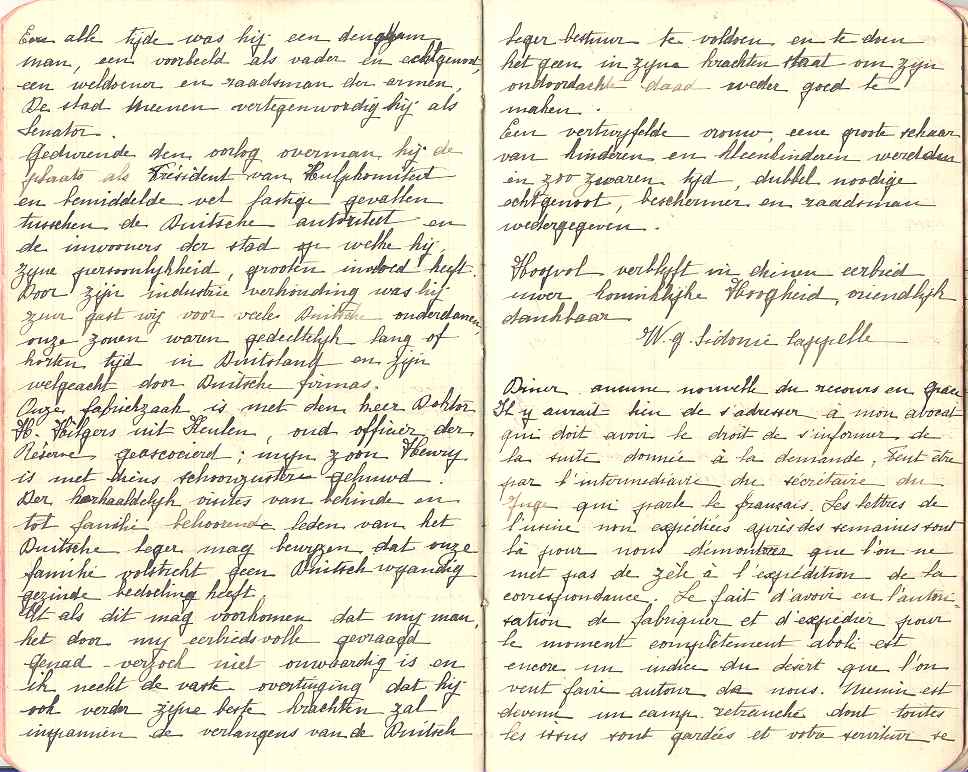 Een alle tijde was hij een deugdzam
man, een voorbeeld als vader en echtgenoot,
een weldoener en raadsman der armen,
De stad Meenen vertegenwordig hij als
Senator.
Gedurende den oorlog overnam hij de
plaats als Président van Hulpkomiteit
en bemiddelde vel lastige gevallen
tusschen de Duitsche autoriteit en
de inwooners der stad op welke hij,
zyne persoonlykheid, grooten invloed heeft.
Door zijn industrie verhouding was hij
zeer gast wij voor veele Duitsche onderdanen,
onze zonen waren gedeeltelijk lang of
korten tijd in Duitsland en zijn
welgeacht door Duitsche firmas.
Onze fabriekzaak is met den heer Doktor
H. Hilgers uit Keulen, oud officier der
Reserve geassocieerd; mijn zoon Henry
is met diens schoonzuster gehuwd.
Der herhaaldelijk visites van bekinde en
tot familie behoorende leden van het
Duitsche leger mag bewyzen dat onze
familie volstrekt geen Duitsch vyandig
gezinde bedoeling heeft.
Uit als dit mag voorkomen dat my man,
het door my eerbiedsvolle gevraagd
genad-verzoek niet onwaardig is en
ik hecht de vaste overtuiging dat hij
ook verder zijne beste krachten zal
inspannen de verlangens van de Duitsch
leger bestuur te voldoen en te doen
het geen in zyne krachten staat om zijn
onvoordachte daad weder goed te
maken.
Een vertwyfelde vrouw, eene groote schaar
van kinderen en kleenkinderen werelden
in zoo zwaren tijd, dubbel noodige
echtgenoot, beschermer en raadsman
wedergegeven.
Hoopvol verblyft in dienen eerbied
uwer koninklijke Hoogheid, vriendlyk
dankbaar
W. g. Sidonie Lappelle
Diner aucune nouvelle du recours en grace
Il y aurait lieu de s'adresser à mon avocat
qui doit avoir le droit de s'informer de
la suite donnée à la demande, Peut être
par l'intermediaire du secrétaire du
Juge qui parle le français. Les lettres de
l'usine non expédiées après des semaines sont
là pour nous démontrer que l'on ne
met pas de zèle à l'expédition de la
correspondance. Le fait d'avoir eu l'autori-
sation de fabriquer et d'expédier pour
le moment complètement aboli est
encore un indice du désert que l'on
veut faire autour de nous. Menin est
devenu un camp retranché dont toutes
les issus sont gardées et votre serviteur se